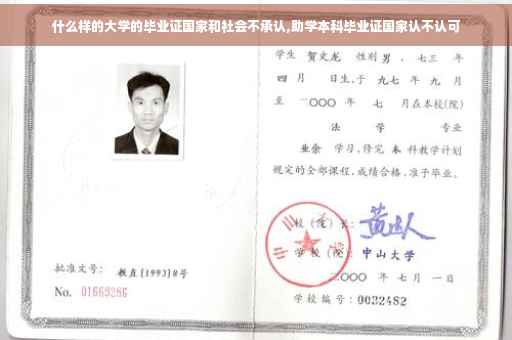 什么样的大学的毕业证国家和社会不承认,助学本科毕业证国家认不认可
学生 贺文龙 性别 男 , 七三 年
四 月 日生,于 九七 年 九 月
至 二〇〇〇 年 七 月在本校(院)
法 学 专业
业余 学习,修完 本 科教学计划
规定的全部课程,成绩合格,准予毕业。
校(院)长:
学 校(院): 中山大学
二〇〇〇 年 七 月 一 日
学校编号: 0032482
批准文号: 教直(1993)8号
No. 01669286